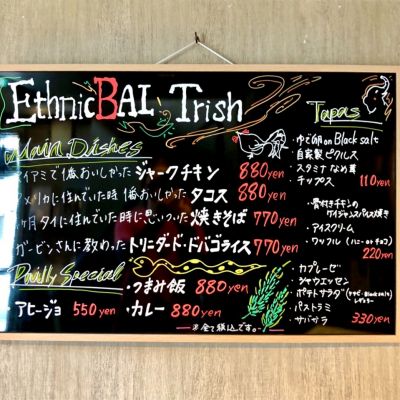 Ethnic BAL Trish
Main Dishes
マイアミで1番おいしかった ジャークチキン 880yen
アメリカに住んでいた時 1番おいしかった タコス 880yen
ヶ月タイに住んでいた時に思いついた 焼きそば 770yen
ガービンさんに教わった トリニダード・トバゴライス 770yen
Daily Special
・つまみ飯 880yen
アヒージョ 550yen ・カレー 880yen
※全て税込です。
Tapas
・ゆで卵 on Black salt
・自家製ピクルス
・スタミナなめ茸
・チップス 110yen
・骨付きチキンの
ケイジャンスパイス焼き
・アイスクリーム
・ワッフル (ハニー or チョコ)
220yen
・カプレーゼ
・シャウエッセン
・ポテトサラダ
・パストラミ
・サバサラ 330yen